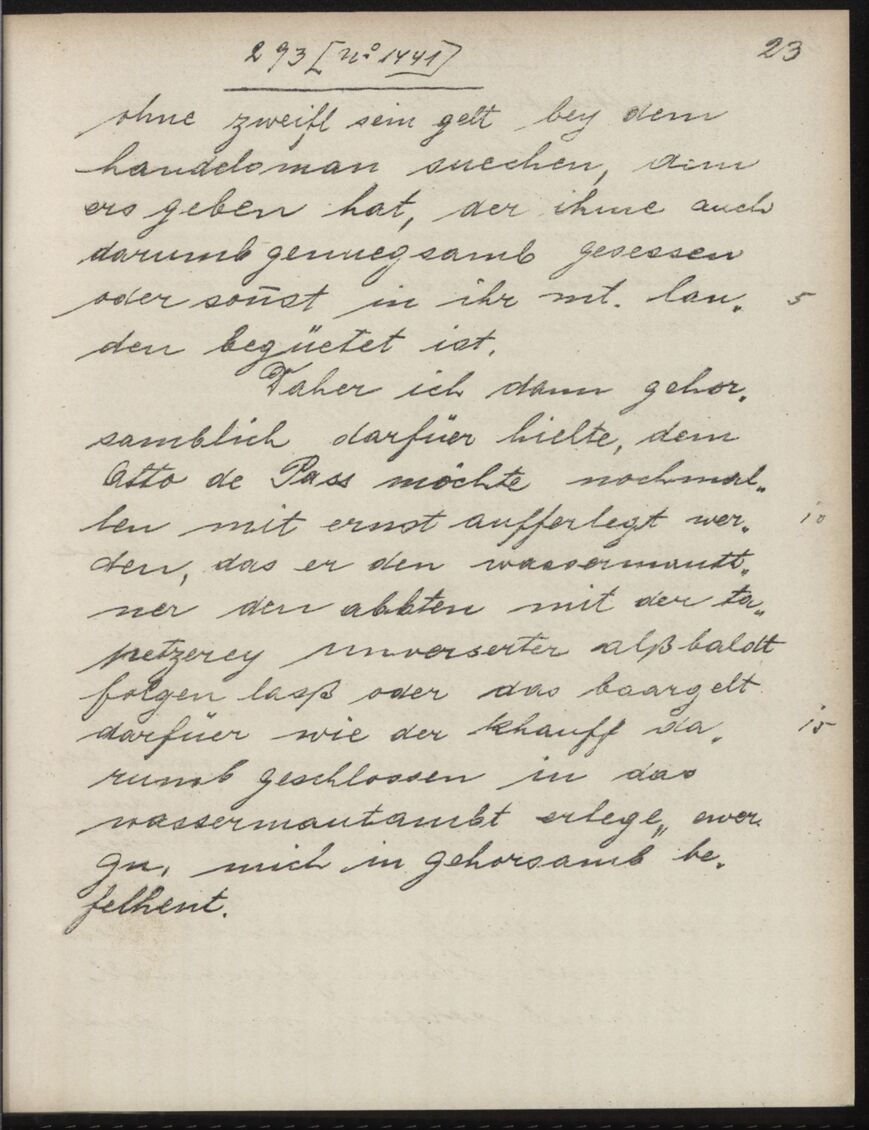 293 [No 1441] 23
ohne zweifl sein gelt bey dem
handelsman suechen, dem
ers geben hat, der ihme auch
darumb genuegsamb gesessen
oder sonst in ihr mt. lan„ 5
den begüetet ist.
Daher ich dann gehor„
samblich darfüer hielte, dem
Otto de Pass möchte nochmal„
len mit ernst aufferlegt wer„ 10
den, das er den wassermautt„
ner den abbten mit der ta„
petzerey unverserter alß baldt
folgen lasß oder das baargelt
darfüer wie der khauff da„ 15
rumb geschlossen in das
wassermautambt erlege„ ewer
gn, mich in gehorsamb be„
felhent.